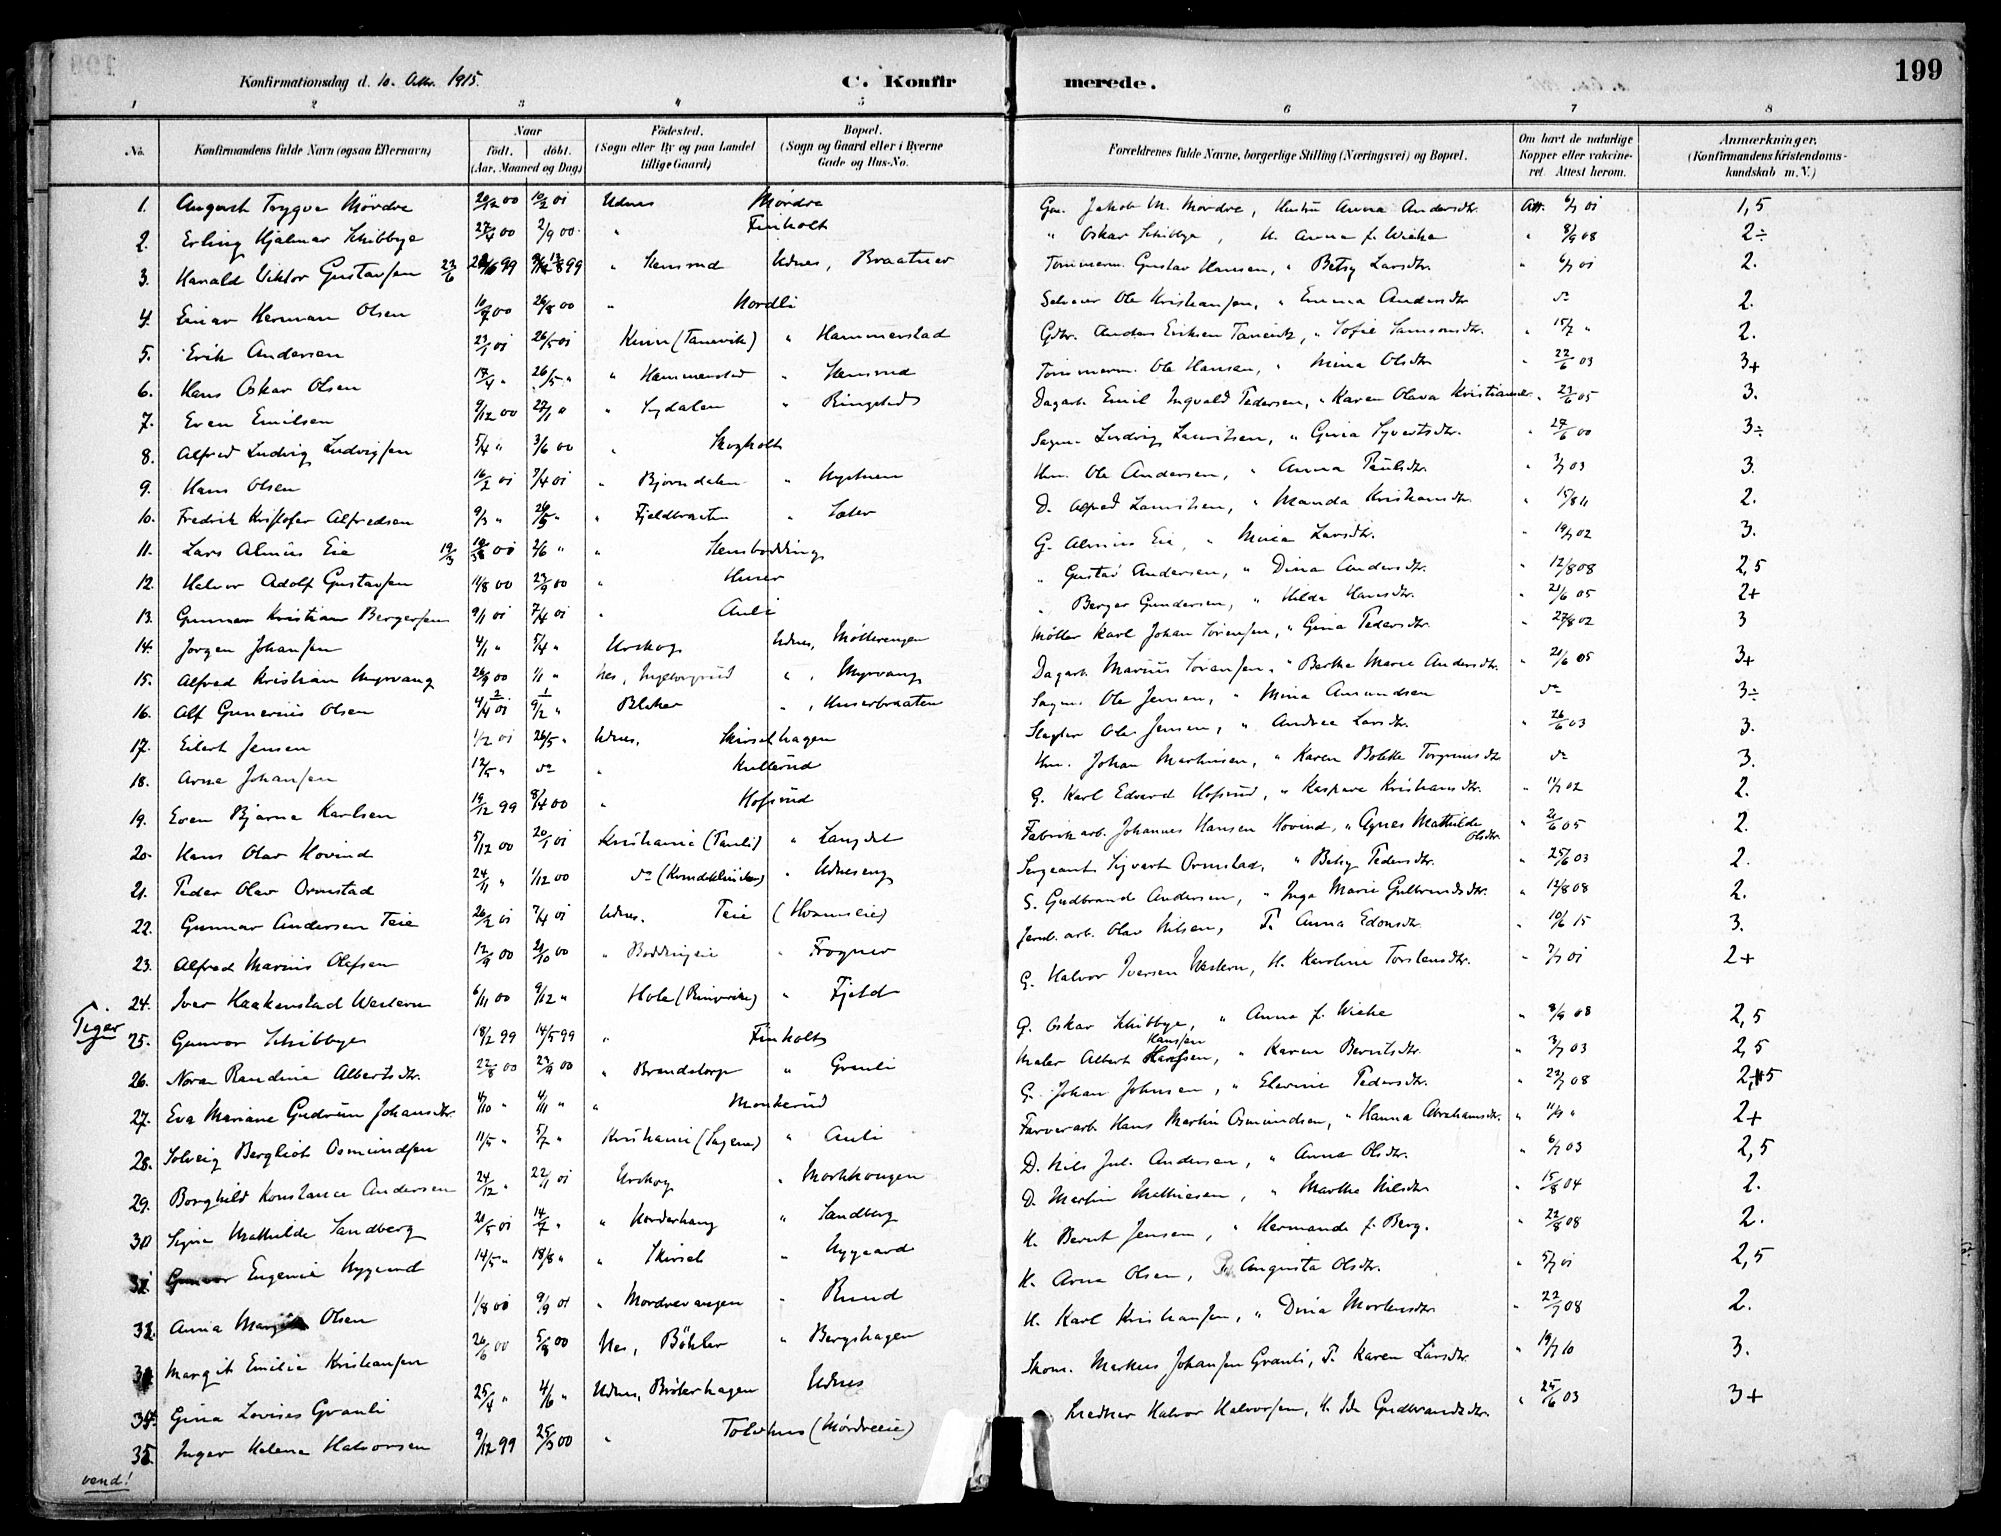 199
Konfirmationsdag d. 10. Oktr. 1915.
C. Konfirmerede.
1 2 3 4 5 6 7 8
No. Konfirmandens fulde Navn (ogsaa Efternavn) Naar født. døbt. (Aar, Maaned og Dag) Fødested. (Sogn eller By og paa Landet tillige Gaard) Bopæl. (Sogn og Gaard eller i Byerne Gade og Hus-No. Forældrenes fulde Navne, borgerlige Stilling (Næringsvei) og Bopæl. Om havt de naturlige Kopper eller vakcineret. Attest herom. Anmærkninger. (Konfirmandens Kristendomskundskab m. V.)
1. August Trygve Mördre 20/12 00 10/2 01 Udnes Mördre Gm. Jakob M. Mördre, Hustru Anna Andersdtr. Att. 6/7 01 1,5
2. Erling Hjalmar Schibbye 27/4 00 2/9 00 " Finholt " Oskar Schibbye, H. Anna f. Wiche " 8/9 08 2÷
3. Harald Viktor Gustavsen 23/6 99 13/8 99 " Hemsrud Udnes, Braatner Tömmerm. Gustav Hansen, " Betsy Larsdtr. " 6/7 01 2.
4. Einar Herman Olsen 10/7 00 26/8 00 " Nordli Selveier Ole Kristiansen, " Emma Andersdtr do 2.
5. Erik Andersen 23/1 01 26/5 01 " Hammerstad Gdbr. Anders Eriksen Tanevik, " Sofie Samsonsdtr. " 15/7 " 2.
6. Hans Oskar Olsen 17/4 " 26/5 " " Hammerstad " Hemsrud Tömmerm. Ole Hansen, " Mina Olsdtr " 22/6 03 3+
7. Even Emilsen 9/12 00 27/1 " " Lydalen " Ringstad Dagarb. Emil Ingvald Pedersen, " Karen Olava Kristiansdr. " 23/6 05 3.
8. Alfred Ludvig Ludvigsen 5/4 " 3/6 00 " Skogholt Sagm. Ludvig Lauritsen, " Gina Syvertsdtr. " 27/6 00 3÷
9. Hans Olsen 16/2 01 7/4 01 " Björndalen " Nystuen Hm. Ole Andersen, " Anna Paulsdtr. " 3/7 03 3.
10. Fredrik Kristofer Alfredsen 9/3 " 26/5 " " Fjeldbraaten " Sæter D. Alfred Lauritsen, " Manda Kristiansdtr " 15/8 11 2.
11. Lars Almius Eie 19/3 01 2/6 " " Hemsbodding G. Almius Eie, " Mina Larsdtr. " 19/7 02 3.
12. Halvor Adolf Gustavsen 11/8 00 23/9 00 " Huser " Gustav Andersen, " Dina Andersdtr. " 12/8 08 2,5
13. Gunnar Kristian Bergersen 9/1 01 7/4 01 " Auli " Berger Gundersen, " Hilda Hansdtr. " 21/6 05 2+
14. Jörgen Johansen 4/1 " 5/4 " Urskog Udnes, Möllerengen Möller Karl Johan Sörensen, " Gina Pedersdtr. " 27/8 02 3
15. Alfred Kristian Myrvang 26/9 00 1/1 " Nes, " , Myrvang Dagarb. Marius Sörensen, " Berthe Marie Andersdtr. " 21/6 05 3+
16. Alf Gunerius Olsen Blaker " , Huserbraaten Sagm. Ole Jensen, " Mina Amundsen do 3÷
17. Eilert Jensen 1/2 01 26/5 " Udnes. Skirselhagen Slagter Ole Jensen, " Andrea Larsdtr. " 26/6 03 3.
18. Arne Johansen 12/5 " do " Kullerud Hm. Johan Martinsen, " Karen Bolette Torgrimsdtr do 3.
19. Even Bjarne Karlsen 19/12 99 8/4 00 " Hofsrud G. Karl Edvard Hofsrud, " Kaspara Kristiansdtr. " 11/7 02 2.
20. Hans Olav Hovind 5/12 00 20/1 01 Kristiania (Pauli) " Langset Fabrikarb. Johannes Hansen Hovind, " Agnes Mathilde Olsdtr. " 21/6 05 2.
21. Peder Olav Ormstad 24/11 " 1/12 00 do " Udneseng Sergeant Sigvart Ormstad, " Betsy Pedersdtr. " 25/6 03 2.
22. Gunnar Andersen Teie 26/2 01 7/4 01 Udnes. Teie S. Gudbrand Andersen, " Inga Marie Gulbrandsdtr. " 12/8 08 2.
23. Alfred Marius Olafsen 12/9 00 21/10 00 " Boddingeie " Frogner Jernb. arb. Olav Nilsen, P. Anna Edonsdtr " 10/6 15 3.
24. Iver Haakenstad Western 6/11 00 9/12 " Hole (Ringerike) " Fjeld G. Halvor Iversen Western, H. Karoline Torstensdtr. " 7/7 01 2+
Piger
25. Gunvor Schibbye 18/2 99 14/5 99 " Finholt G. Oskar Schibbye, " Anna f. Wiche " 8/9 08 2,5
26. Nora Randine Albertsdtr. 22/8 00 23/9 00 " Brandstorp " Granli Maler Albert Hansen, " Karen Berntsdtr. " 3/7 03 2,5
27. Eva Mariane Gudrun Johansdtr. 4/10 " 4/11 " " Monkerud G. Johan Johnsen, " Elevine Pedersdtr. " 22/7 08 2,5
28. Solveig Bergliot Osmundsen 11/5 " 5/7 " Kristiania (Sagene) " Auli Farverarb. Hans Martin Osmundsen, " Hanna Abrahamsdtr. " 11/9 " 2+
29. Borghild Konstance Andersen 24/12 " 22/1 01 Urskog " Morkhaugen D. Nils Jul. Andersen, " Anna Olsdtr. " 6/7 03 2,5
30 Signe Mathilde Sandberg 21/5 01 14/7 " " Norderhaug " Sandberg D. Martin Mathisen, " Marthe Nilsdtr " 15/8 04 2.
31 Gunvor Eugenie Nygaard 14/5 " 18/8 " " Skirsel " Nygaard H. Bernt Jensen, " Hermande f. Berg. " 22/8 08 2.
32. Anna Olsen 1/8 00 9/9 01 " Mördrevangen " Rund H. Arne Olsen, Augusta Olsdtr. " 5/7 01 2,5
Margit Emilie Kristiansen 26/6 00 5/8 00 Nes, Böhler " Bergshagen H. Karl Kristiansen, " Dina Mortensdtr " 22/7 08 2.
34. Gina Lovise Granli 25/4 " 4/6 " Udnes, Bröterhagen Udnes Skom. Markus Johansen Granli, P. Karen Larsdtr. " 19/7 10 3.
35. Inger Helene Halvorsen 9/12 99 25/3 00 " Tolvhus (Mördreeie) Snedker Halvor Halvorsen, H. Ida Gudbrandsdtr. " 25/6 03 3+
vend!